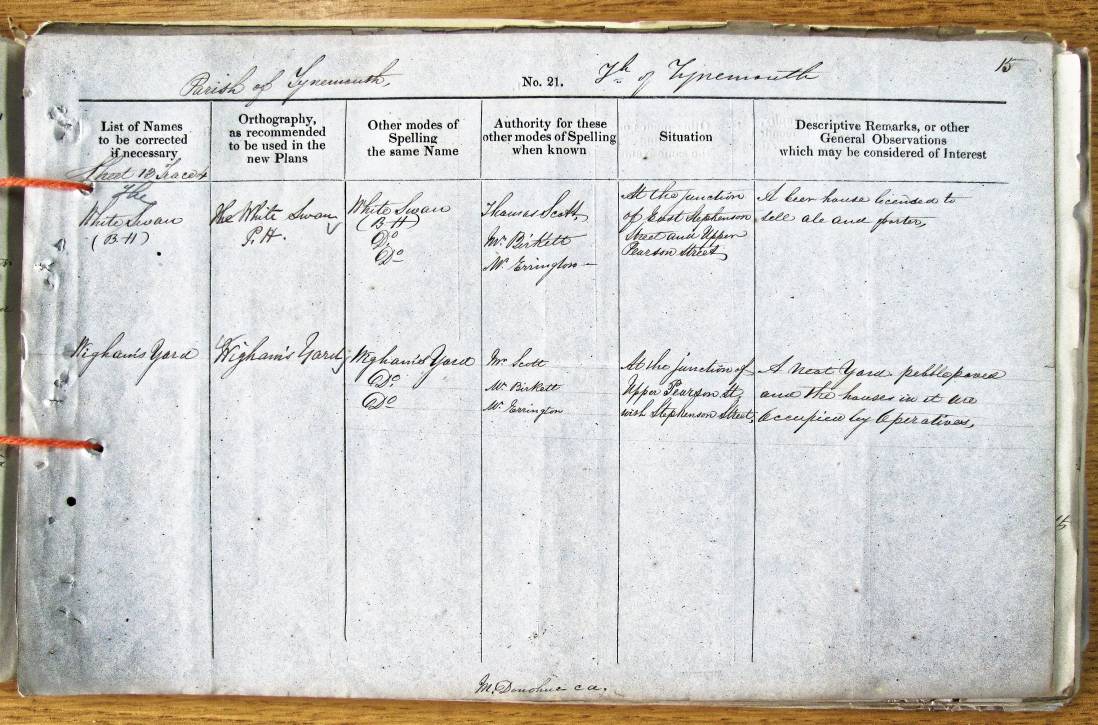 15
Parish of Tynemouth,
No. 21.
Tp of Tynemouth
List of Names
to be corrected
if necessary
Orthography,
as recommended
to be used in the
new Plans
Other modes of
Spelling
the same Name
Authority for these
other modes of Spelling
when known
Situation
Descriptive Remarks, or other
General Observations
which may be considered of Interest
Sheet 13 Trace 4
The
White Swan
(B-H)
The White Swan
P.H.
White Swan
(B-H)
Do
Do
Thomas Scott,
Mr Birkett
Mr Errington
At the junction
of East Stephenson
Street and Upper
Pearson Street,
A beer house licensed to
sell ale and porter,
Wigham's Yard
Wigham's Yard
Wigham's Yard
Do
Do
Mr Scott
Mr Birkett
Mr Errington
At the junction of
Upper Pearson St.
with Stephenson Street,
A neat Yard pebblepaved
and the houses in it are
occupied by Operatives,
M. Donohue c.a.